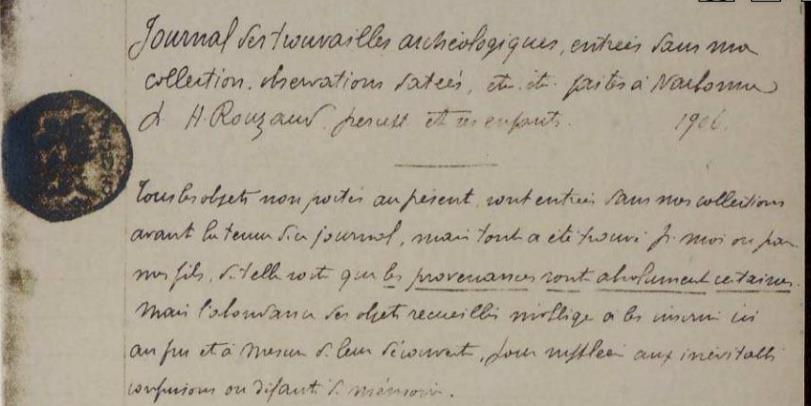 Journal des trouvailles archéologiques, entrées dans ma
collection, observations datées, etc. etc. faites à Narbonne
H. Rouzaud, et ses enfants. 1906.
Tous les objets non portés au présent, sont entrés dans nos collections
avant la tenue de ce journal, mais tout a été trouvé pr moi ou par
mes fils, de telle sorte que les provenances sont absolument certaines.
Mais l'abondance des objets recueillis m'oblige à les inscrire ici
au fur et à mesure de leur découverte, pour suppléer aux inévitables
confusions ou défauts de mémoire.